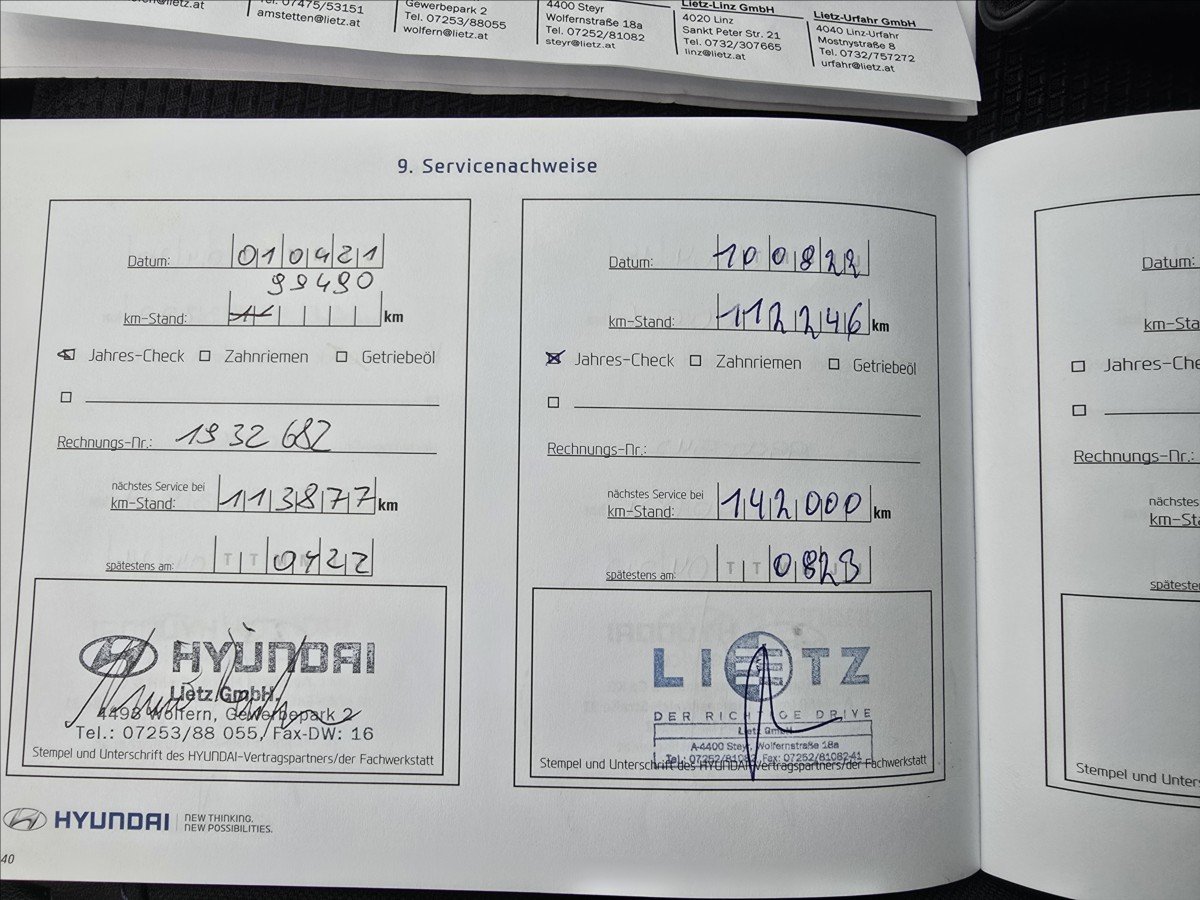 Tel. 07475/53151
amstetten@lietz.at
Gewerbepark 2
Tel. 07253/88055
wolfern@lietz.at
4400 Steyr
Wolfernstraße 18a
Tel. 07252/81082
steyr@lietz.at
Lietz-Linz GmbH
4020 Linz
Sankt Peter Str. 21
Tel. 0732/307665
linz@lietz.at
Lietz-Urfahr GmbH
4040 Linz-Urfahr
Mostnystraße 8
Tel. 0732/757272
urfahr@lietz.at
9. Servicenachweise
Datum: 010421
99490
km-Stand: km
Jahres-Check Zahnriemen Getriebeöl
Rechnungs-Nr.: 1932682
nächstes Service bei
km-Stand: 113877 km
spätestens am: 0422
HYUNDAI
Lietz GmbH.
4493 Wolfern, Gewerbepark 2
Tel.: 07253/88 055, Fax-DW: 16
Stempel und Unterschrift des HYUNDAI-Vertragspartners/der Fachwerkstatt
Datum: 100822
km-Stand: 112246 km
Jahres-Check Zahnriemen Getriebeöl
Rechnungs-Nr.:
nächstes Service bei
km-Stand: 142000 km
spätestens am: TT 0823
LIETZ
DER RICHTIGE DRIVE
Lietz GmbH
A-4400 Steyr, Wolfernstraße 18a
Tel.: 07252/81082, Fax: 07252/81082-41
Stempel und Unterschrift des HYUNDAI-Vertragspartners/der Fachwerkstatt
Datum:
km-Sta
Jahres-Che
Rechnungs-Nr.:
nächstes
km-Sta
spätesten
Stempel und Unters
HYUNDAI NEW THINKING.
NEW POSSIBILITIES.
40